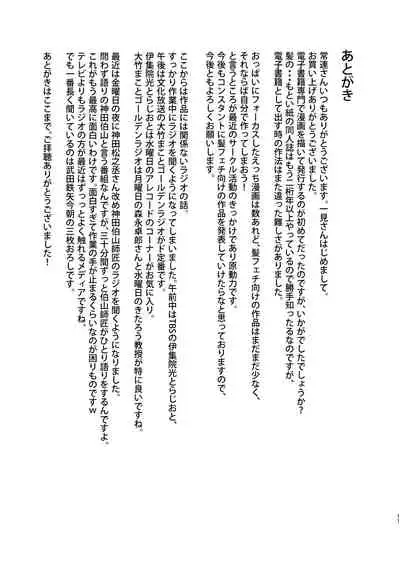 あとがき
常連さんいつもありがとうございます。一見さんはじめまして。
お買い上げありがとうございました。
電子書籍専門で漫画を描いて発行するのが初めてだったのですが、いかがでしたでしょうか？
髪の・・・もとい紙の同人誌はもう二桁年以上やっているので勝手知ったるなのですが、
電子書籍として出す時の作法はまた違った難しさがありました。
おっぱいにフォーカスしたえっち漫画は数あれど、髪フェチ向けの作品はまだまだ少なく、
それならば自分で作ってしまおう！
と言うところが最近のサークル活動のきっかけであり原動力です。
今後もコンスタントに髪フェチ向けの作品を発表していけたらなと思っておりますので、
今後ともよろしくお願いします。
ここからは作品には関係ないラジオの話。
すっかり作業中にラジオを聞くようになってしまいました。午前中はTBSの伊集院光とらじおと、
午後は文化放送の大竹まことゴールデンラジオが定番です。
伊集院光とらじおとは水曜日のアレコードのコーナーがお気に入り。
大竹まことゴールデンラジオは月曜日の森永卓郎さんと水曜日のきたろう教授が特に良いですね。
最近は金曜日の夜に神田松之丞さん改め神田伯山師匠のラジオを聞くようになりました。
問わず語りの神田伯山と言う番組なんですが、三十分間ずっと伯山師匠がひとり語りをするんですよ。
これがもう最高に面白いわけです。面白すぎて作業の手が止まるくらいなのが困りものですｗ
テレビよりもラジオの方が最近はずっっとよく触れるメディアですね。
でも一番長く聞いているのは武田鉄矢今朝の三枚おろしです。
あとがきはここまで、ご拝聴ありがとうございました！